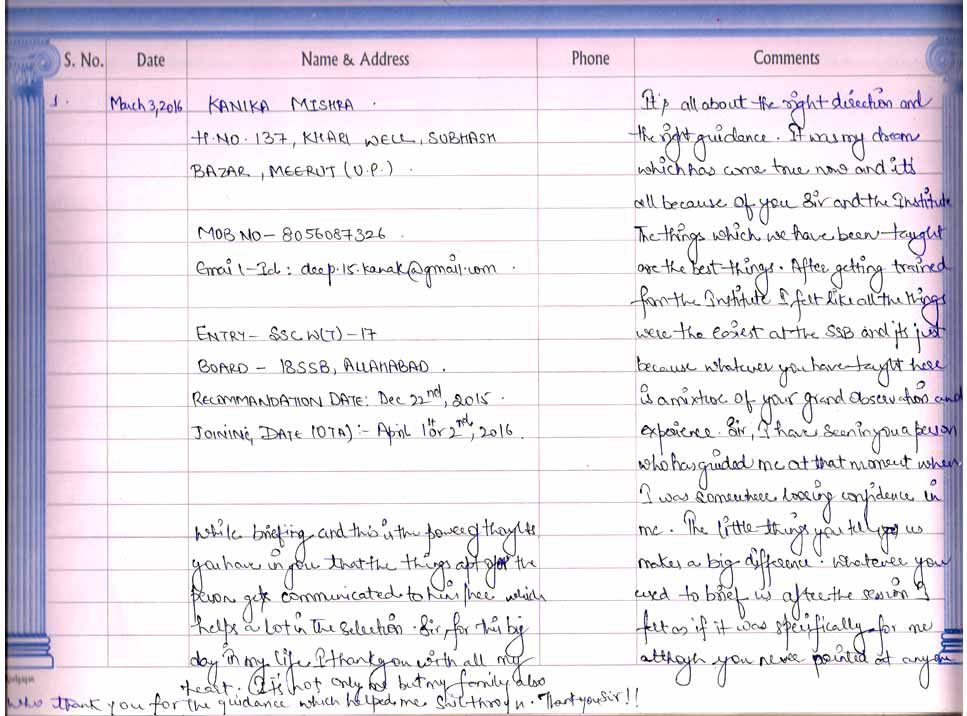 S. No. Date Name & Address Phone Comments
1. March 3, 2016 KANIKA MISHRA.
H.NO. 137, KHARI WELL, SUBHASH
BAZAR, MEERUT (U.P.).
MOB NO - 8056087326.
Email-Id: deep.15.kanak@gmail.com.
ENTRY - SSC W(T) - 17
BOARD - 18SSB, ALLAHABAD.
RECOMMANDATION DATE: Dec 22nd, 2015.
JOINING DATE (OTA):- April 1st or 2nd, 2016.
It's all about the right direction and
the right guidance. It was my dream
which has come true now and it's
all because of you Sir and the Institute
The things which we have been taught
are the best things. After getting trained
from the Institute I felt like all the things
were the easiest at the SSB and its just
because whatever you have taught here
is a mixture of your grand observation and
experience. Sir, I have seen in you a person
who has guided me at that moment when
I was somewhere loosing confidence in
me. The little things you tell us
makes a big difference. Whatever you
used to brief us after the session I
felt as if it was specifically for me
although you never pointed at anyone
while briefing and this is the power of thoughts
you have in you that the things apt for the
person gets communicated to him/her which
helps a lot in the selection. Sir, for this big
day in my life I thank you with all my
heart. It is not only me but my family also
who thank you for the guidance which helped me sail through. Thank you Sir!!